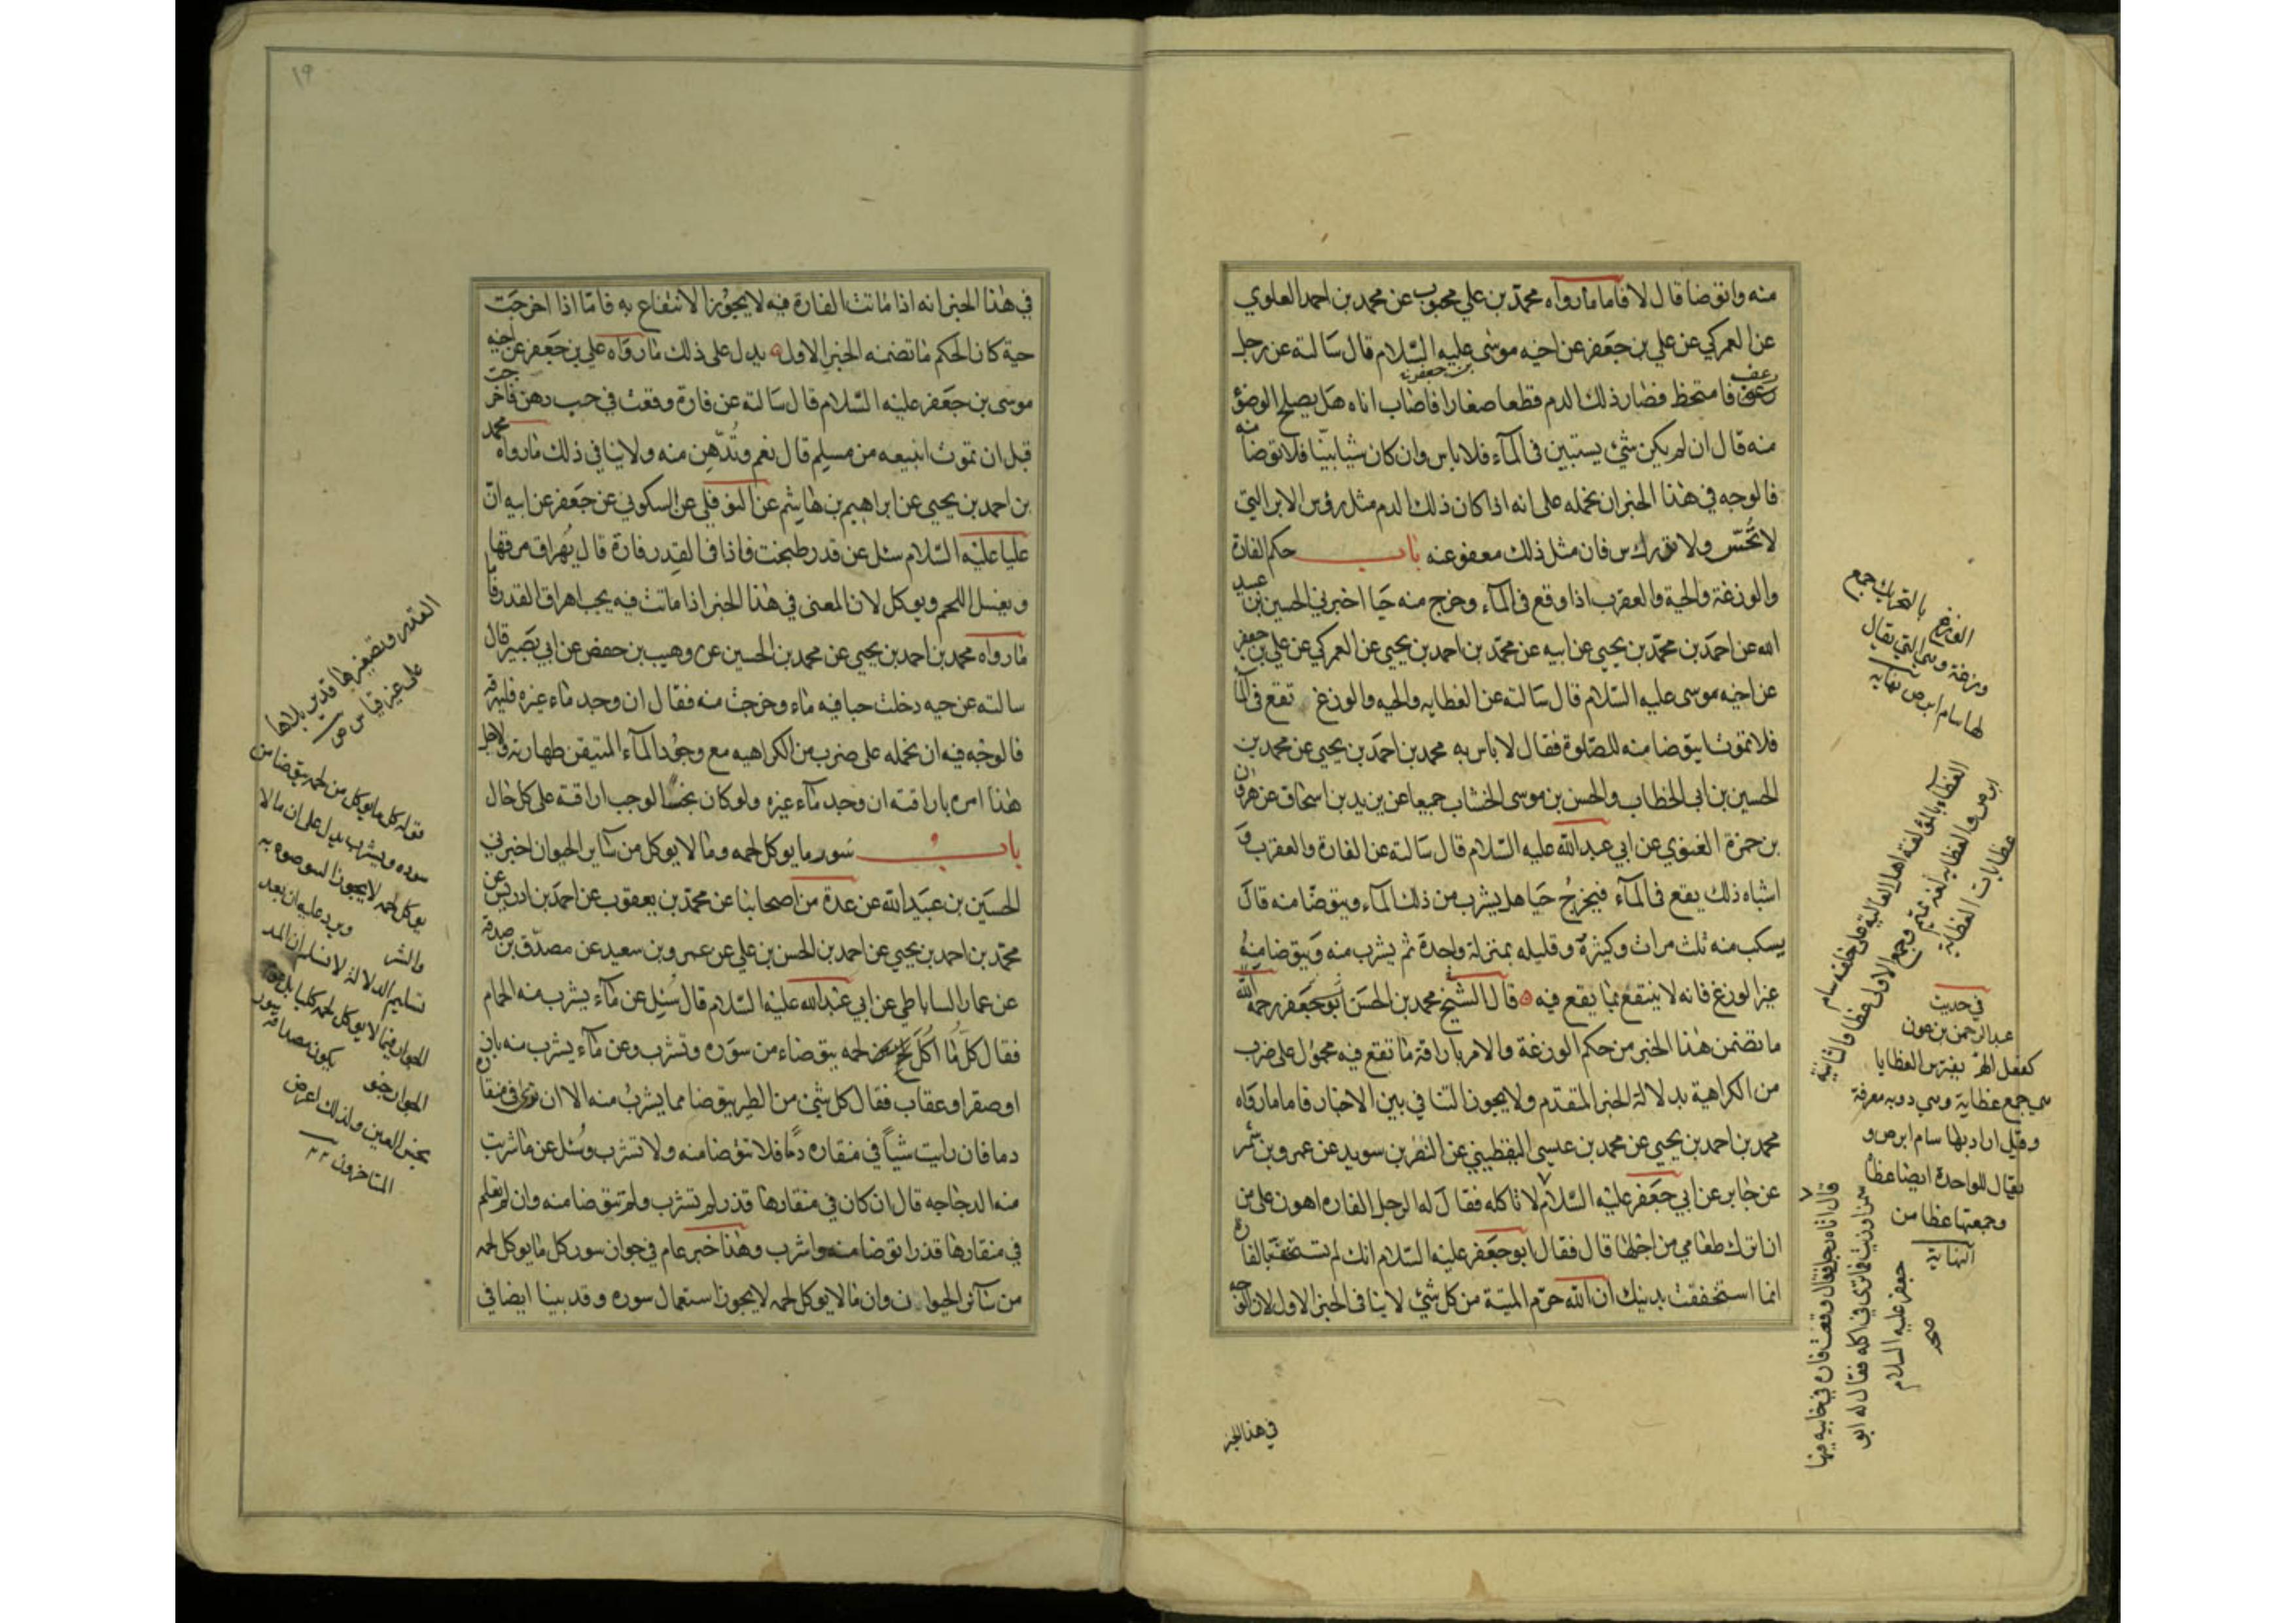 منه واتوضا قال لا فاما مارواه محمد بن علي محبوب عن محمد بن احمد العلوي
عن العمركي عن علي بن جعفر عن اخيه موسى عليه السلام قال سالته عن رجل
بن جعفر
رعف
رعف فامتخط فصار ذلك الدم قطعا صغارا فاصاب اناه هل يصلح الوضؤ
منه
منه قال ان لم يكن شئ يستبين في المآء فلا باس وان كان شيا بينا فلا توضا
فالوجه في هذا الخبر ان نحمله على انه اذا كان ذلك الدم مثل رؤس الابر التي
لا تُحَسّ ولا تدرك س فان مثل ذلك معفو عنه باب حكم الفارة
والوزغة والحية والعقرب اذا وقع في المآء وخرج منه حيا اخبرني الحسين بن عبيد
الله عن احمد بن محمد بن يحيى عن ابيه عن محمد بن احمد بن يحيى عن العمركي عن علي بن جعفر
عن اخيه موسى عليه السلام قال سالته عن العظايه والحيه والوزغ تقع في المآ
فلا تموت ايتوضا منه للصلوة فقال لا باس به محمد بن احمد بن يحيى عن محمد بن
الحسين بن ابي الخطاب والحسن بن موسى الخشاب جميعا عن يزيد بن اسحاق عن هرون
بن حمزة الغنوي عن ابي عبد الله عليه السلام قال سالته عن الفارة والعقرب و
اشباه ذلك يقع في المآء فيخرج حيا هل يشرب من ذلك المآء ويتوضا منه قال
يسكب منه ثلث مرات وكثيرة وقليله بمنزلة واحدة ثم يشرب منه ويتوضا منه
غير الوزغ فانه لا ينتفع بما يقع فيه قال الشيخ محمد بن الحسن ابو جعفر رحمه الله
ما تضمن هذا الخبر من حكم الوزغة والامر باراقة ما تقع فيه محمول على ضرب
من الكراهية بدلالة الخبر المتقدم ولا يجوز التنافي بين الاخبار فاما مارواه
محمد بن احمد بن يحيى عن محمد بن عيسى اليقطيني عن النضر بن سويد عن عمرو بن شمر
عن جابر عن ابي جعفر عليه السلام لا تاكله فقال له الرجل الفاره اهون علي من
ان اترك طعامي من اجلها قال فقال ابو جعفر عليه السلام انك لم تستخف بالفارة
انما استخففت بدينك ان الله حرم الميتة من كل شئ لا ينافي الخبر الاول لان الوجه
في هذا الخبر
الوزغ بالتحريك جمع
وزغة وهي التي يقال
لها سام ابرص نهايه
العظاء بالمؤلفة اهل العالية على خلقة سام
ابرص والعظاية لغة تميم وجمع الاولى عظا والثانية
عظايات العظاية
في حديث
عبد الرحمن بن عون
كفعل الهر يفترس العظايا
هي جمع عظاية وهي دويبه معرفة
وقيل اراد بها سام ابرص و
يقال للواحدة ايضا عظا
وجمعتها عظا من
النهاية
قال اتاه رجل فقال وقعت فارة في خابيه فيها
سمن او زيت فما ترى في اكله فقال له ابو
جعفر عليه السلام
صح
١٩
في هذا الخبر انه اذا ماتت الفارة فيه لا يجوز الانتفاع به فاما اذا اخرجت
حية كان الحكم ما تضمنه الخبر الاول يدل على ذلك ما رواه علي بن جعفر عن اخيه
موسى بن جعفر عليه السلام قال سالته عن فارة وقعت في حب دهن فاخرجت
قبل ان تموت انبيعه من مسلم قال نعم وتدهن منه ولا ينافي ذلك مارواه محمد
بن احمد بن يحيى عن ابراهيم بن هاشم عن النوفلي عن السكوني عن جعفر عن ابيه ان
عليا عليه السلام سئل عن قدر طبخت فاذا في القدر فارة قال يهراق مرقها
ويغسل اللحم ويوكل لان المعنى في هذا الخبر اذا ماتت فيه يجب اهراق القدر فاما
مارواه محمد بن احمد بن يحيى عن محمد بن الحسين عن وهيب بن حفص عن ابي بصير قال
سالته عن حيه دخلت حبا فيه ماء وخرجت منه فقال ان وجد ماء غيره فليهرقه
فالوجه فيه ان نحمله على ضرب من الكراهيه مع وجود المآء المتيقن طهارته ولاجل
هذا امره باراقته ان وجد مآء غيره ولو كان نجسا لوجب اراقته على كل حال
باب سور ما يوكل لحمه وما لا يوكل من سآير الحيوان اخبرني
الحسين بن عبيد الله عن عدة من اصحابنا عن محمد بن يعقوب عن احمد بن ادريس عن
محمد بن احمد بن يحيى عن احمد بن الحسن بن علي عن عمرو بن سعيد عن مصدق بن صدقة
عن عمار الساباطي عن ابي عبد الله عليه السلام قال سئل عن مآء يشرب منه الحمام
فقال كل ما اكل لحمه يتوضاء من سوره وتشرب وعن مآء يشرب منه باز
او صقر او عقاب فقال كل شئ من الطير يتوضا مما يشرب منه الا ان ترى في منقاره
دما فان رايت شيأ في منقاره دما فلا تتوضا منه ولا تشرب وسئل عن ما شربت
منه الدجاجه قال ان كان في منقارها قذر لم تشرب ولم تتوضا منه وان لم تعلم
في منقارها قذرا توضا منه واشرب وهذا خبر عام في جواز سور كل ما يوكل لحمه
من سآئر الحيوان وان ما لا يوكل لحمه لا يجوز استعمال سوره وقد بينا ايضا في
القدر وتصغيرها قدير بلا ها
على غير قياس ص
قوله كل ما يوكل من لحمه يتوضا من
سوره ويشرب يدل على ان ما لا
يوكل لحمه لا يجوز الوضوء به
والشرب ويرد عليه ان بعد
تسليم الدلالة لا نسلم ان المراد
الحيوان فيما لا يوكل لحمه كليا بل
الحيوان يكون مصداقه سور
نجس العين ولذلك اعرض
المتاخرون